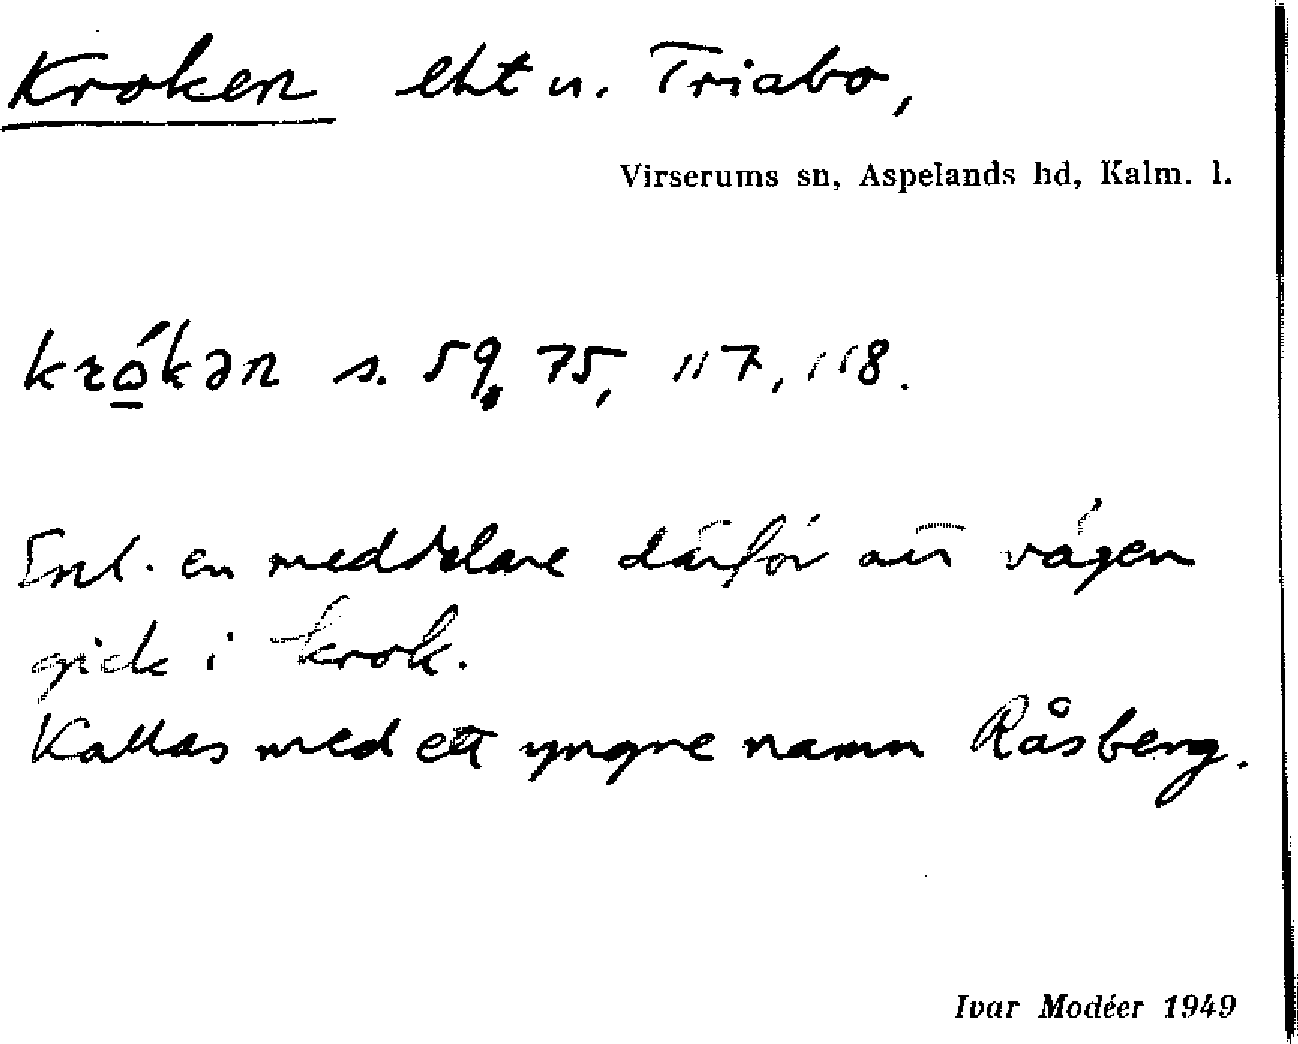 Kroken lht u. Triabo,
Virserums sn, Aspelands hd, Kalm. l.
krǫ́kən s. 59, 75, 117, 118.
Enl. en meddelare därför att vägen
gick i krok.
Kallas med ett yngre namn Råsberg.
Ivar Modéer 1949